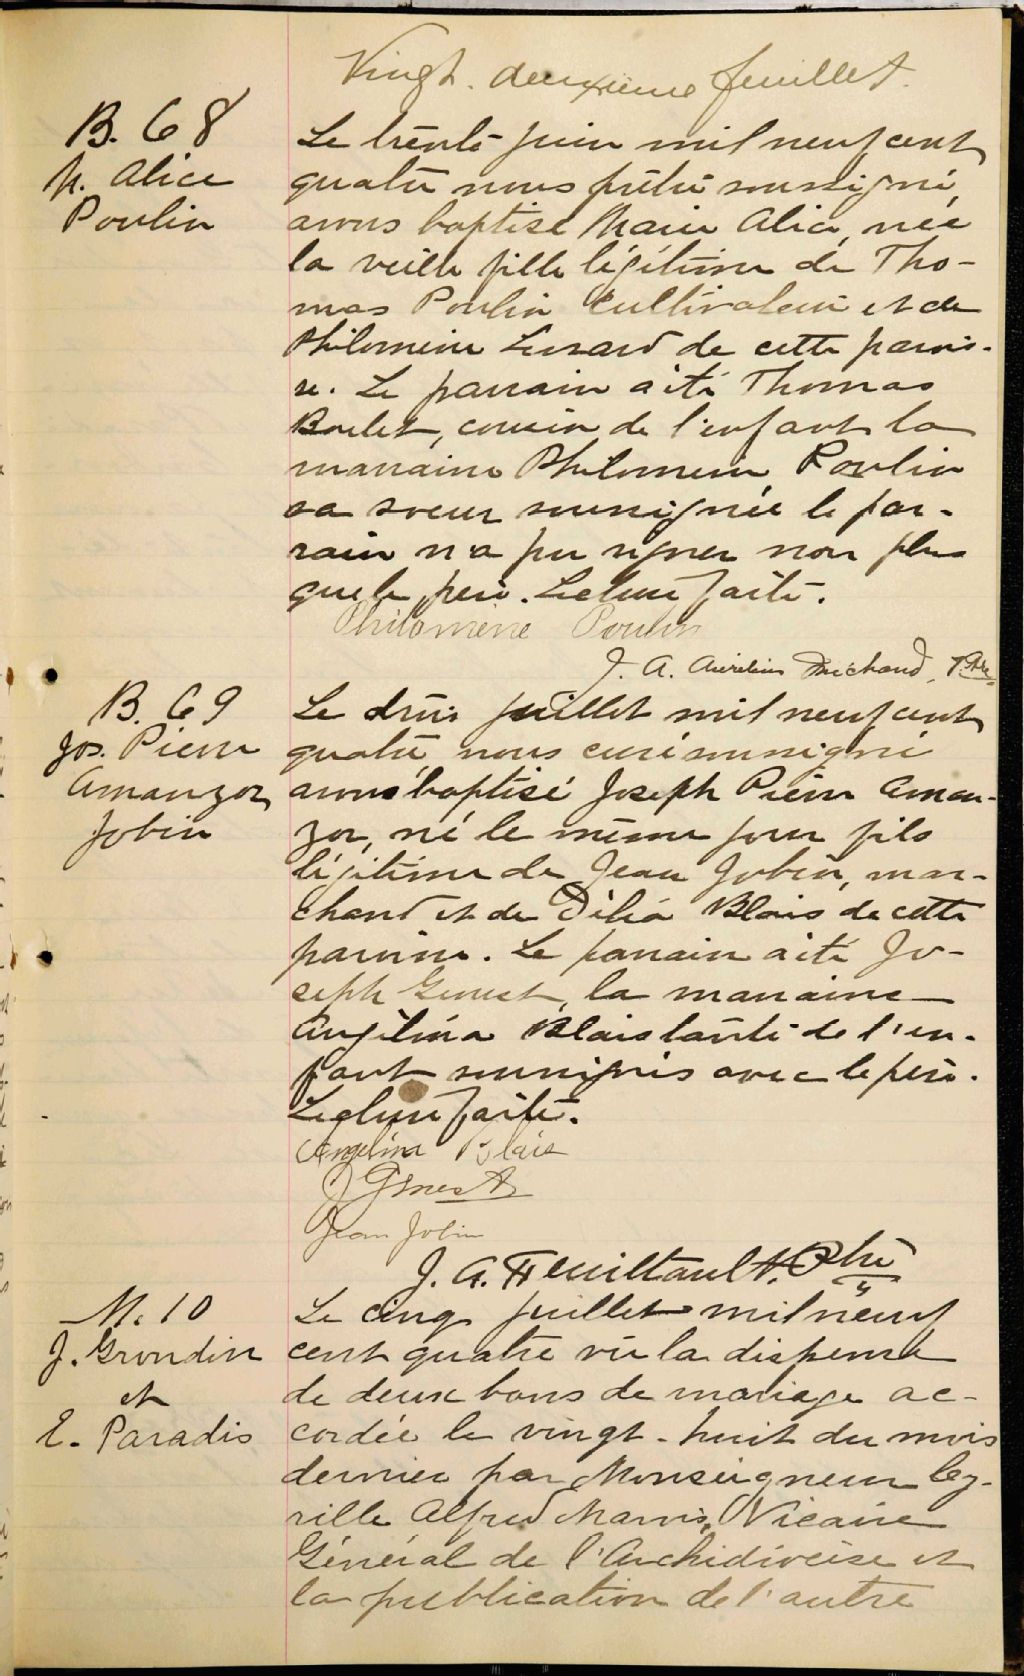 Vingt-deuxième feuillet.
B. 68
M. Alice
Poulin
Le trente juin mil neuf cent
quatre nous prêtre soussigné,
avons baptisé Marie Alice, née
la veille fille légitime de Tho-
mas Poulin cultivateur et de
Philomène Lessard de cette parois-
se. Le parrain a été Thomas
Boulet, cousin de l'enfant la
marraine Philomène Poulin
sa soeur soussignée le par-
rain n'a pu signer non plus
que le père. Lecture faite.
Philomène Poulin
J. A. Aurélius Michaud, Ptre
B. 69
Jos. Pierre
Amanzor
Jobin
Le deux juillet mil neuf cent
quatre, nous curé soussigné
avons baptisé Joseph Pierre Aman-
zor, né le même jour fils
légitime de Jean Jobin, mar-
chand et de Délia Blais de cette
paroisse. Le parrain a été Jo-
seph Genest, la marraine
Angélina Blais tante de l'en-
fant soussignés avec le père.
Lecture faite.
Angelina Blais
J Genest
Jean Jobin
J. A. Feuiltault. Ptre
M. 10
J. Grondin
et
E. Paradis
Le cinq juillet mil neuf
cent quatre vu la dispense
de deux bans de mariage ac-
cordée le vingt-huit du mois
dernier par Monseigneur Cy-
rille Alfred Marois, Vicaire
Général de l'Archidiocèse et
la publication de l'autre